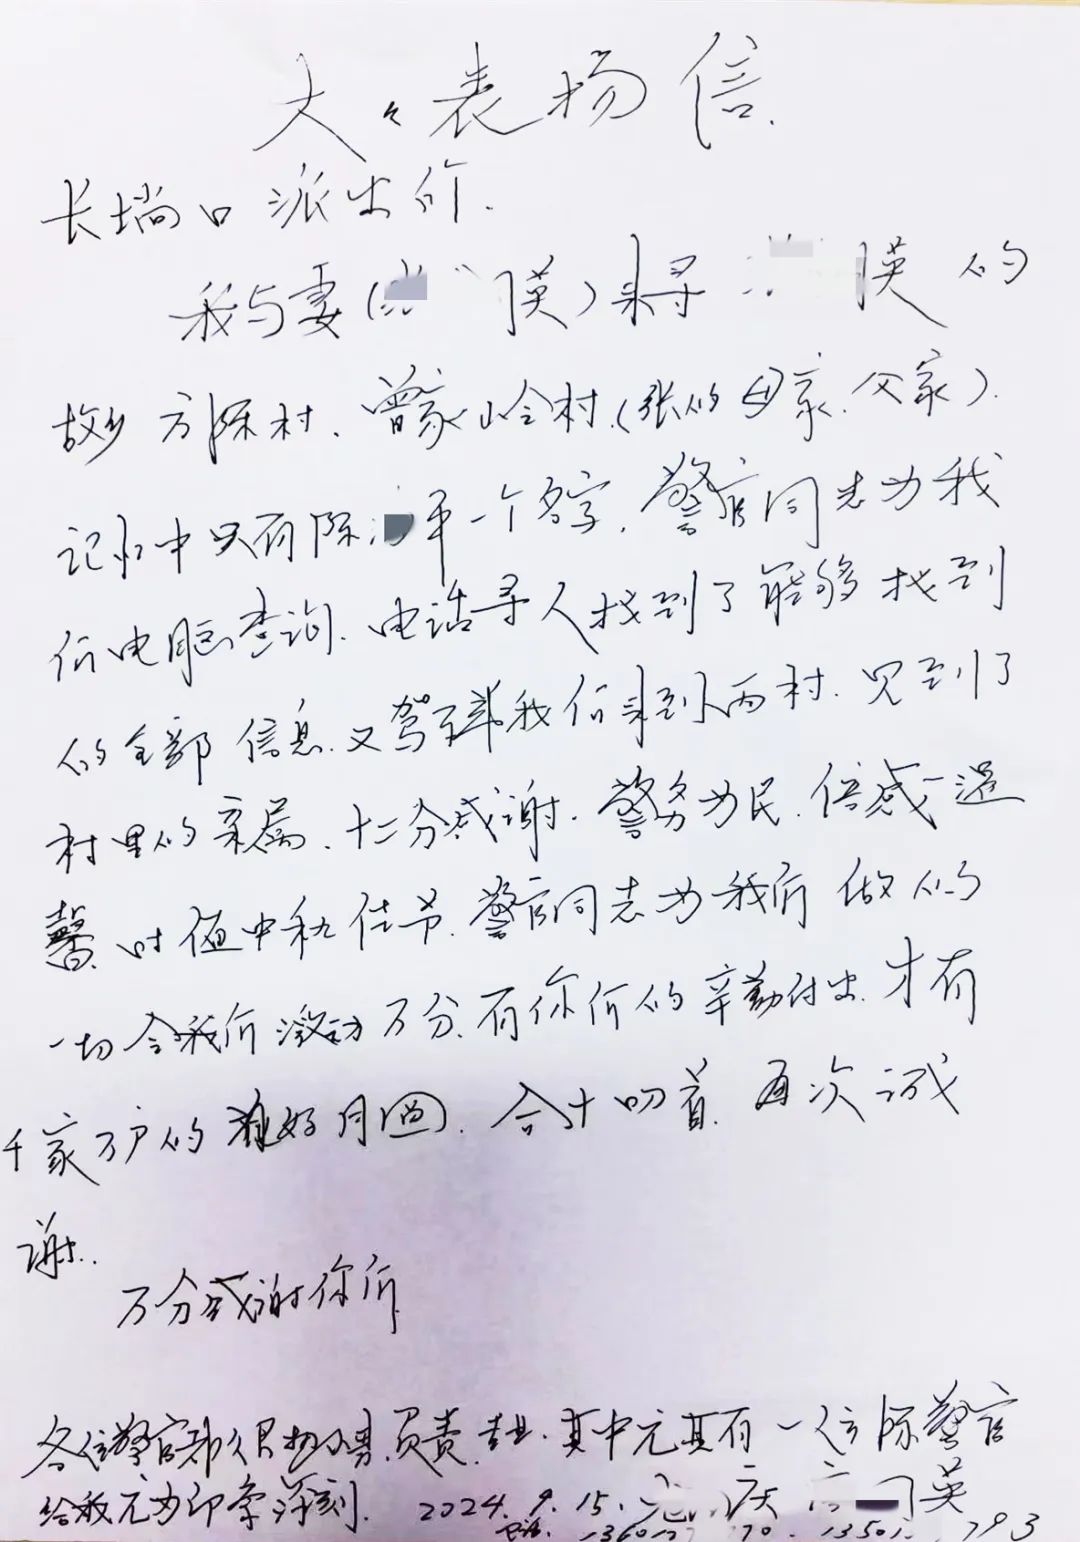 大々表扬信.
长端口派出所.
我与妻( 英)来寻 英的
故乡方陈村、曾家岭村(张的母亲、父家).
记忆中只有陈 平一个名字,警官同志为我
们电脑查询.电话寻人找到了能够找到
的全部信息.又驾车载我们来到两村.见到了
村里的亲属、十二分感谢.警务为民.倍感温
馨.时值中秋佳节.警官同志为我们做的
一切令我们激动万分.有你们的辛勤付出.才有
千家万户的 好月圆.合十叩首.再次诚
谢..
万分感谢你们
各位警官都很热 .负责.专业.其中尤其有一位陈警官
给我尤为印象深刻. 2024.9.15. 庆 英
电话. 136 70. 1350 793